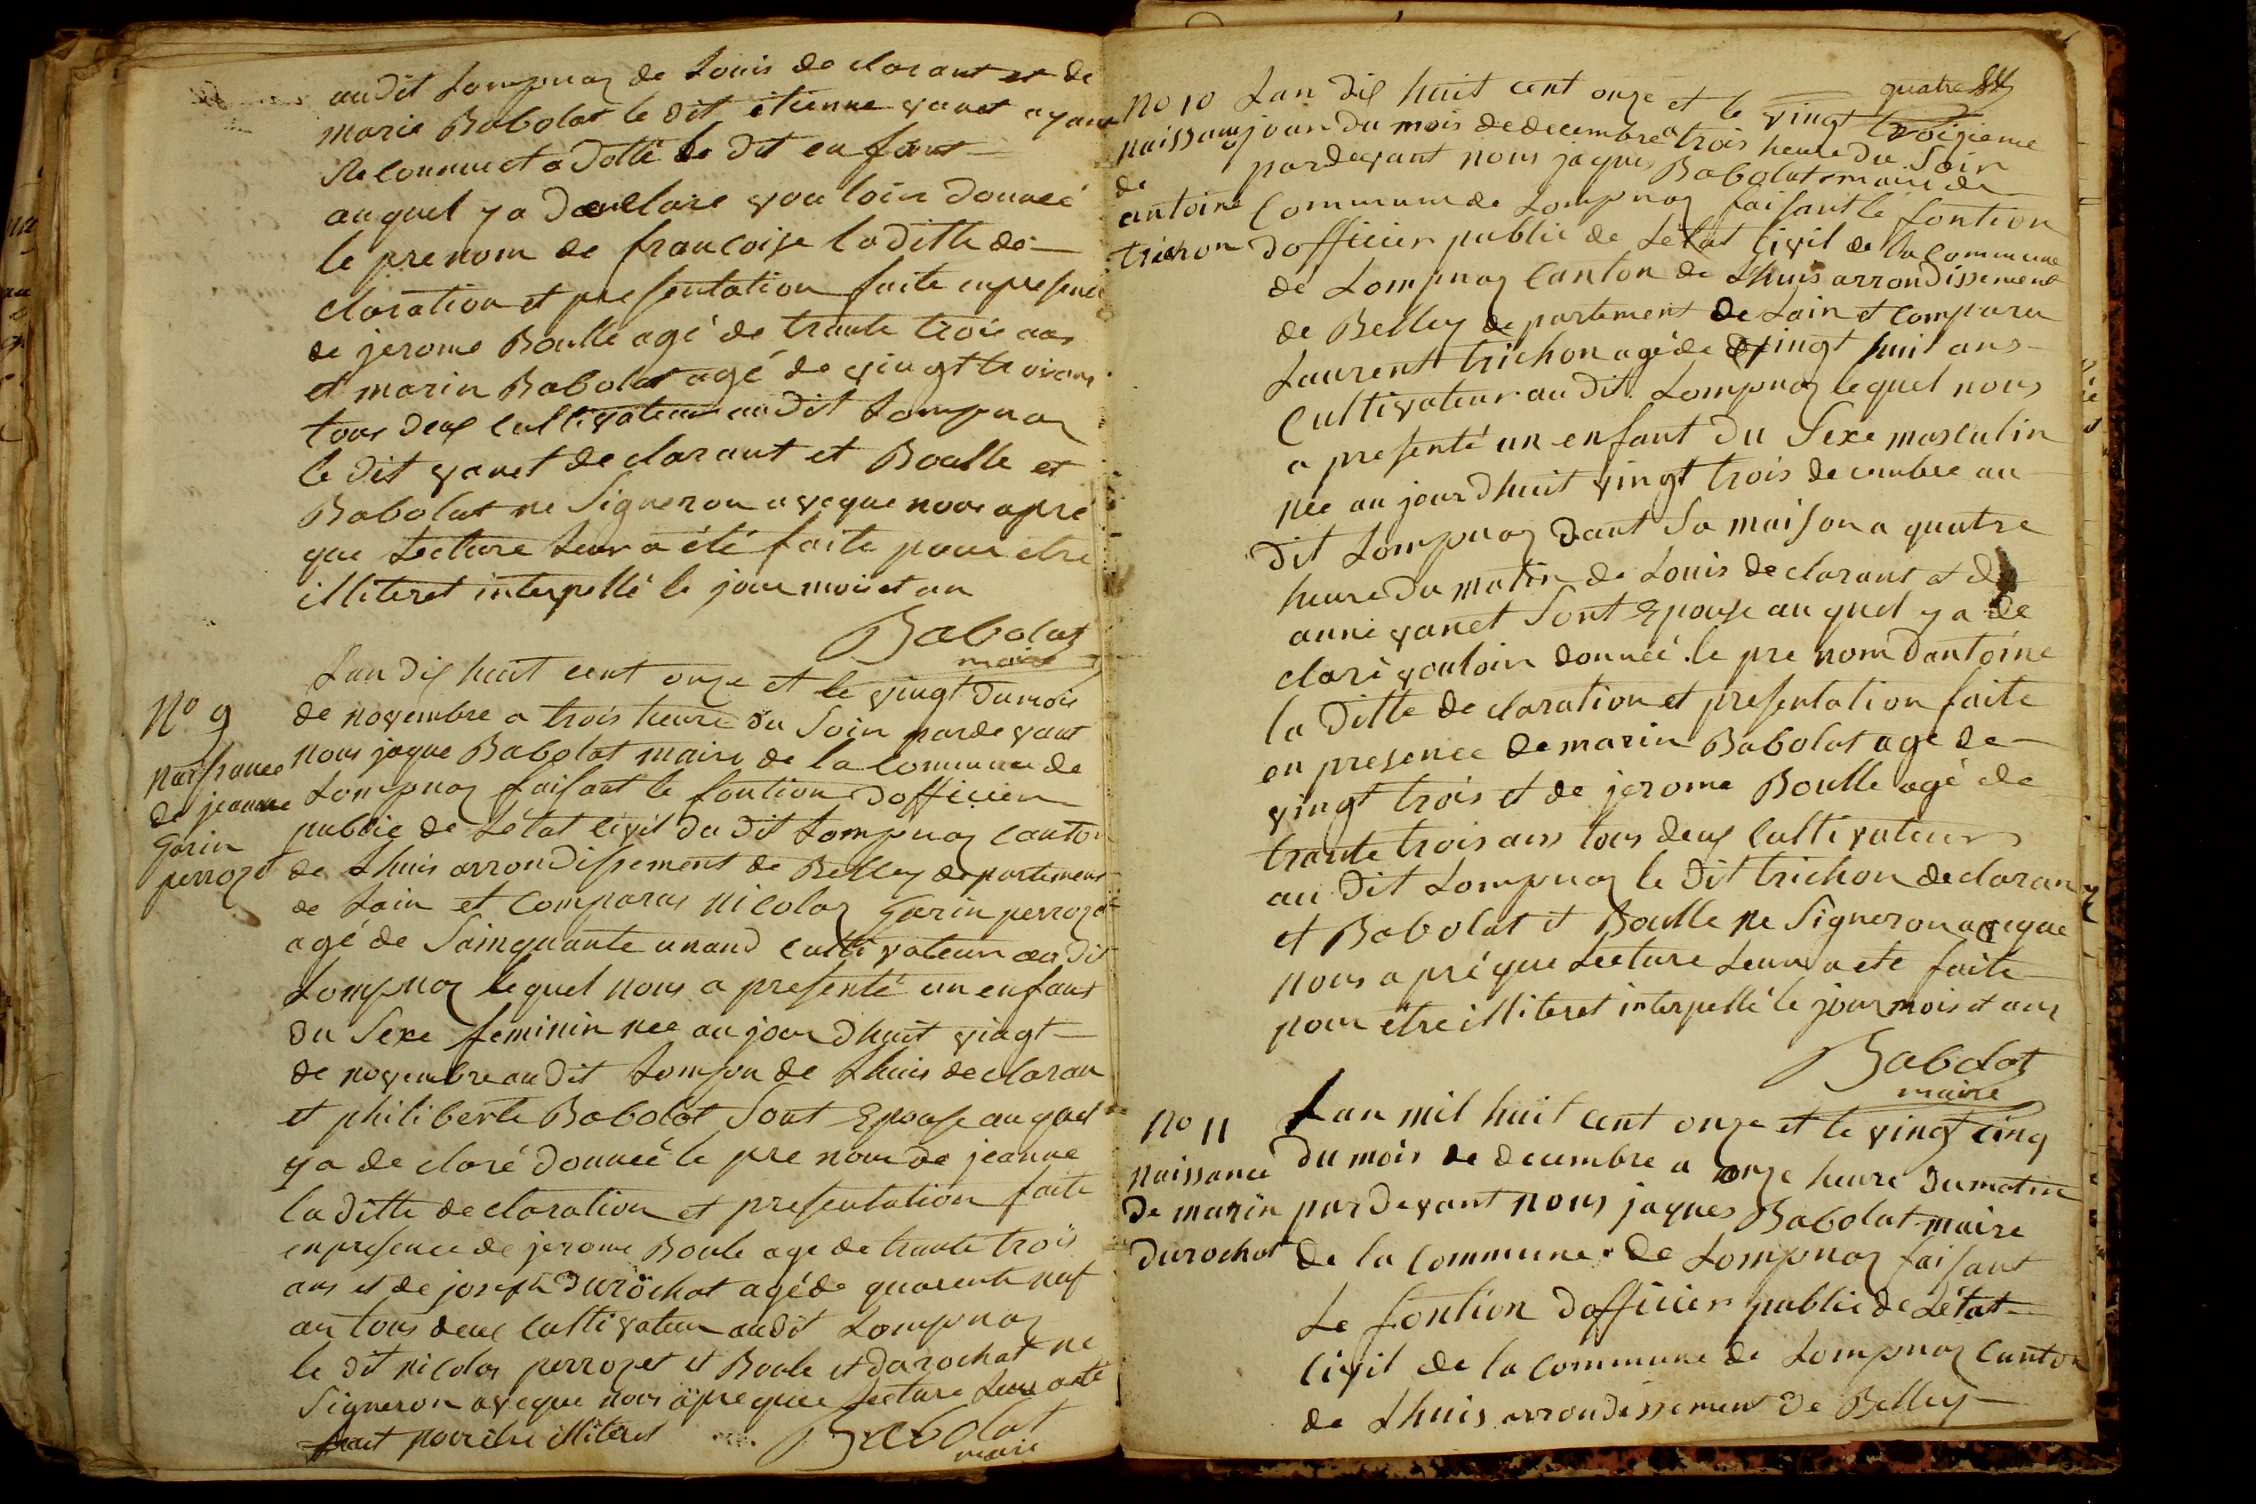 audit Lompnaz de Louis declarant et de
marie Babolat le dit etienne vanet ayant
Reconnue et adotté le dit enfant
auquel ya declare vouloir donneé
le prenom de francoise laditte de-
claration et presentation faite enpresence
de jerome Boulle agé de trante trois ans
et marin Babolat agé de vingt troisans
tous deux Cultivateur au dit Lompnaz
le dit vanet declarant et Boulle et
Babolat ne Signeron aveque nous apré
que Lecture Leur a été faite pour etre
illiteret interpellé le jour mois et an
Babolat
maire
No 9
naissance
de jeanne
Garin
perrozet
Lan dix huit cent onze et le vingt du mois
de novembre a trois heure du Soir pardevant
nous jaque Babolat maire de la Commune de
Lompnaz faisant le fontion dofficier
public de Létat civil du dit Lompnaz canton
de Lhuis arrondissement de Belley departement
de Lain et Comparus nicolas Garin perrozet
agé de Sainquante unand cultivateur au dit
Lompnaz lequel nous a presenté un enfant
du Sexe feminin née au jourdhuit vingt
de novembre au dit Lompn de Lhuis declaran
et philiberte Babolat Sont Epouse auquel
ya declaré donneé le pre nom de jeanne
la ditte declaration et presentation faite
enpresence de jerome Boule age de trante trois
ans et de joseph durochat agé de quarente nuf
an tous deux Cultivateur audit Lompnaz
le dit nicolas perrozet et Boule et durochat ne
Signeron aveque nous apreque Lecture Leur aété
fait pour etre illiteret
Babolat
maire
quatre
No 10
naissance
de
antoine
trichon
Lan dix huit cent onze et le vingt troizieme
jour du mois de decembre a trois heure du Soir
pardevant nous jaques Babolat maire de
Commune de Lompnaz faisant le fontion
dofficier public de Létat Civil de la Commune
de Lompnaz Canton de Lhuis arrondissement
de Belley departement de Lain et Comparu
Laurent trichon agé de vingt huit ans
Cultivateur au dit Lompnaz lequel nous
a presenté un enfant du Sexe masculin
née au jourdhuit vingt trois decembre au
dit Lompnaz dant Sa maison a quatre
heure du matin de Louis declarant et de
anne vanet Sont Epouse auquel ya de
claré vouloir donneé le pre nom dantoine
la ditte declaration et presentation faite
en presence de marin Babolat agé de
vingt trois et de jerome Boulle agé de
trante trois ans tous deux Cultivateur
au dit Lompnaz le dit trichon declaran
et Babolat et Boulle ne Signeron aveque
nous apréque Lecture Leur a eté faite
pour être illiteret interpellé le jour mois et ans
Babolat
maire
No 11
naissance
de marin
durochat
Lan mil huit cent onze et le vingt cinq
du mois de decembre a onze heure du matin
pardevant nous jaques Babolat maire
de la Commune de Lompnaz faisant
Le fontion dofficier public de Létat
Civil de la Commune de Lompnaz Canton
de Lhuis arrondissement de Belley